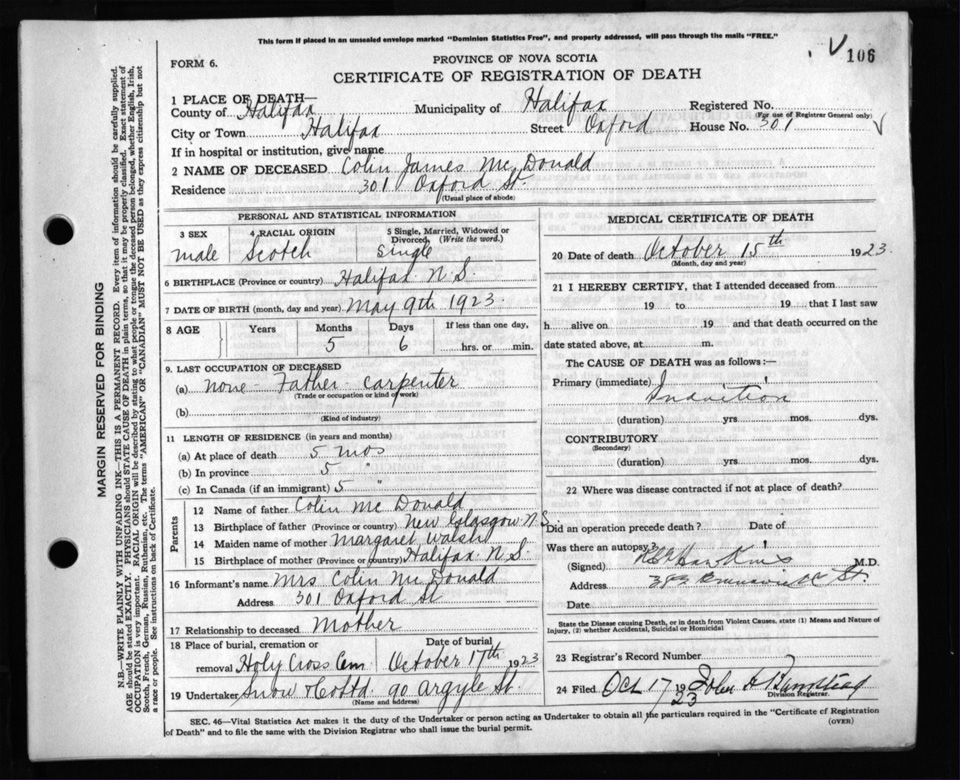 This form if placed in an unsealed envelope marked "Dominion Statistics Free", and properly addressed, will pass through the mails "FREE."
FORM 6.
PROVINCE OF NOVA SCOTIA
CERTIFICATE OF REGISTRATION OF DEATH
V 106
1 PLACE OF DEATH—
County of Halifax Municipality of Halifax Registered No.
(For use of Registrar General only)
City or Town Halifax Street Oxford House No. 301 V
If in hospital or institution, give name
2 NAME OF DECEASED Colin James McDonald
Residence 301 Oxford St.
(Usual place of abode)
PERSONAL AND STATISTICAL INFORMATION
3 SEX 4 RACIAL ORIGIN 5 Single, Married, Widowed or Divorced, (Write the word.)
male Scotch Single
6 BIRTHPLACE (Province or country) Halifax N.S.
7 DATE OF BIRTH (month, day and year) May 9th 1923
8 AGE Years Months Days If less than one day,
5 6 hrs. or min.
9. LAST OCCUPATION OF DECEASED
(a) none - Father - carpenter
(Trade or occupation or kind of work)
(b)
(Kind of industry)
11 LENGTH OF RESIDENCE (in years and months)
(a) At place of death 5 mos
(b) In province 5 "
(c) In Canada (if an immigrant) 5 "
Parents
12 Name of father Colin McDonald
13 Birthplace of father (Province or country) New Glasgow N.S.
14 Maiden name of mother Margaret Walsh
15 Birthplace of mother (Province or country) Halifax N.S.
16 Informant's name Mrs Colin McDonald
Address 301 Oxford St
17 Relationship to deceased Mother
18 Place of burial, cremation or removal Holy Cross Cem
Date of burial October 17th 1923
19 Undertaker Snow & Co Ltd. 90 Argyle St.
(Name and address)
MEDICAL CERTIFICATE OF DEATH
20 Date of death October 15th 1923.
(Month, day and year)
21 I HEREBY CERTIFY, that I attended deceased from
19 to 19 that I last saw
h alive on 19 and that death occurred on the
date stated above, at m.
The CAUSE OF DEATH was as follows:—
Primary (immediate) Inanition
(duration) yrs mos. dys.
CONTRIBUTORY
(Secondary)
(duration) yrs mos. dys.
22 Where was disease contracted if not at place of death?
Did an operation precede death? Date of
Was there an autopsy?
(Signed) Hawkins M.D.
Address Brunswick St.
Date
State the Disease causing Death, or in death from Violent Causes, state (1) Means and Nature of Injury, (2) whether Accidental, Suicidal or Homicidal
23 Registrar's Record Number
24 Filed Oct 17 1923 John
Division Registrar.
SEC. 46—Vital Statistics Act makes it the duty of the Undertaker or person acting as Undertaker to obtain all the particulars required in the "Certificate of Registration
of Death" and to file the same with the Division Registrar who shall issue the burial permit.
(OVER)
MARGIN RESERVED FOR BINDING
N.B.—WRITE PLAINLY WITH UNFADING INK—THIS IS A PERMANENT RECORD. Every item of information should be carefully supplied.
AGE should be stated EXACTLY. PHYSICIANS should STATE CAUSE OF DEATH in plain terms, so that it may be properly classified. Exact statement of
OCCUPATION is very important. RACIAL ORIGIN will be described by stating to what people or tongue the deceased person belonged, whether English, Irish,
Scotch, French, German, Russian, Ruthenian, etc. The terms "AMERICAN" OR "CANADIAN" MUST NOT BE USED as they express citizenship but not
a race or people. See instructions on back of Certificate.